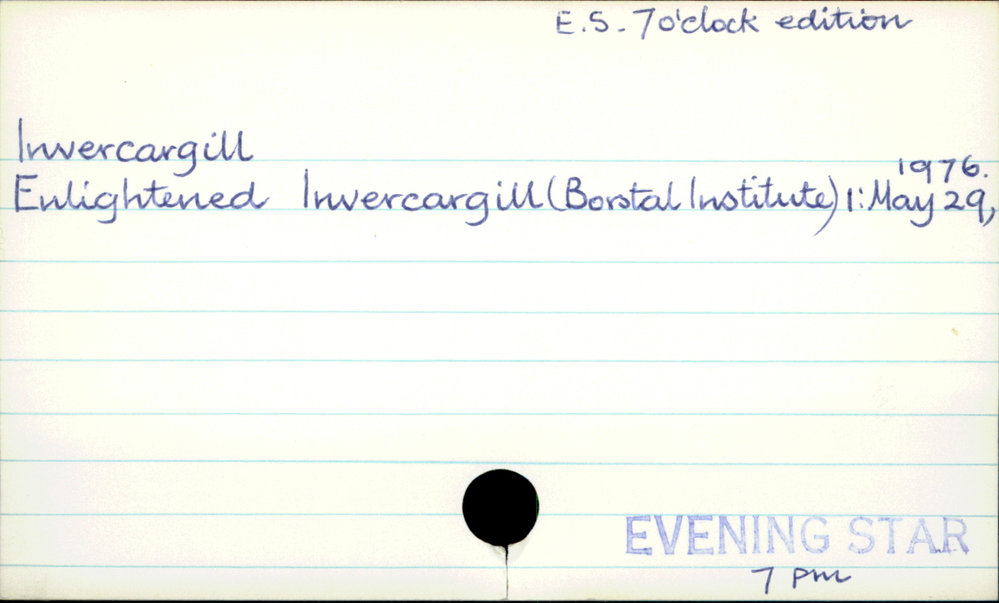 E.S. 7o'clock edition
Invercargill
1976.
Enlightened Invercargill (Borstal Institute) 1: May 29,
EVENING STAR
7 pm